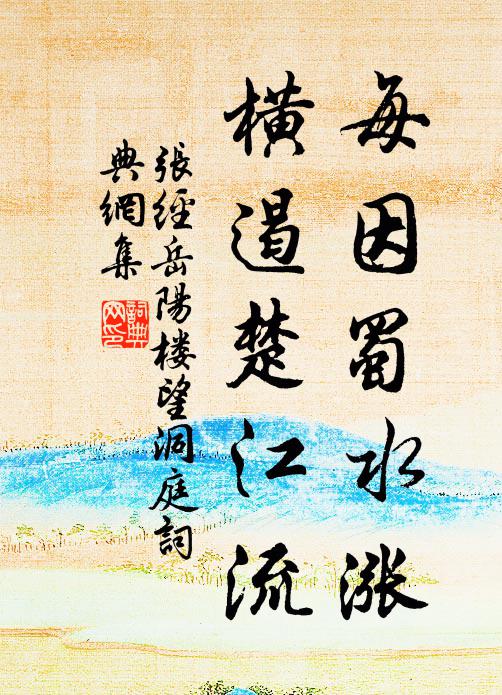 每因蜀水漲
橫遏楚江流
張經岳陽楼望洞庭詞
典網集
詞典網印